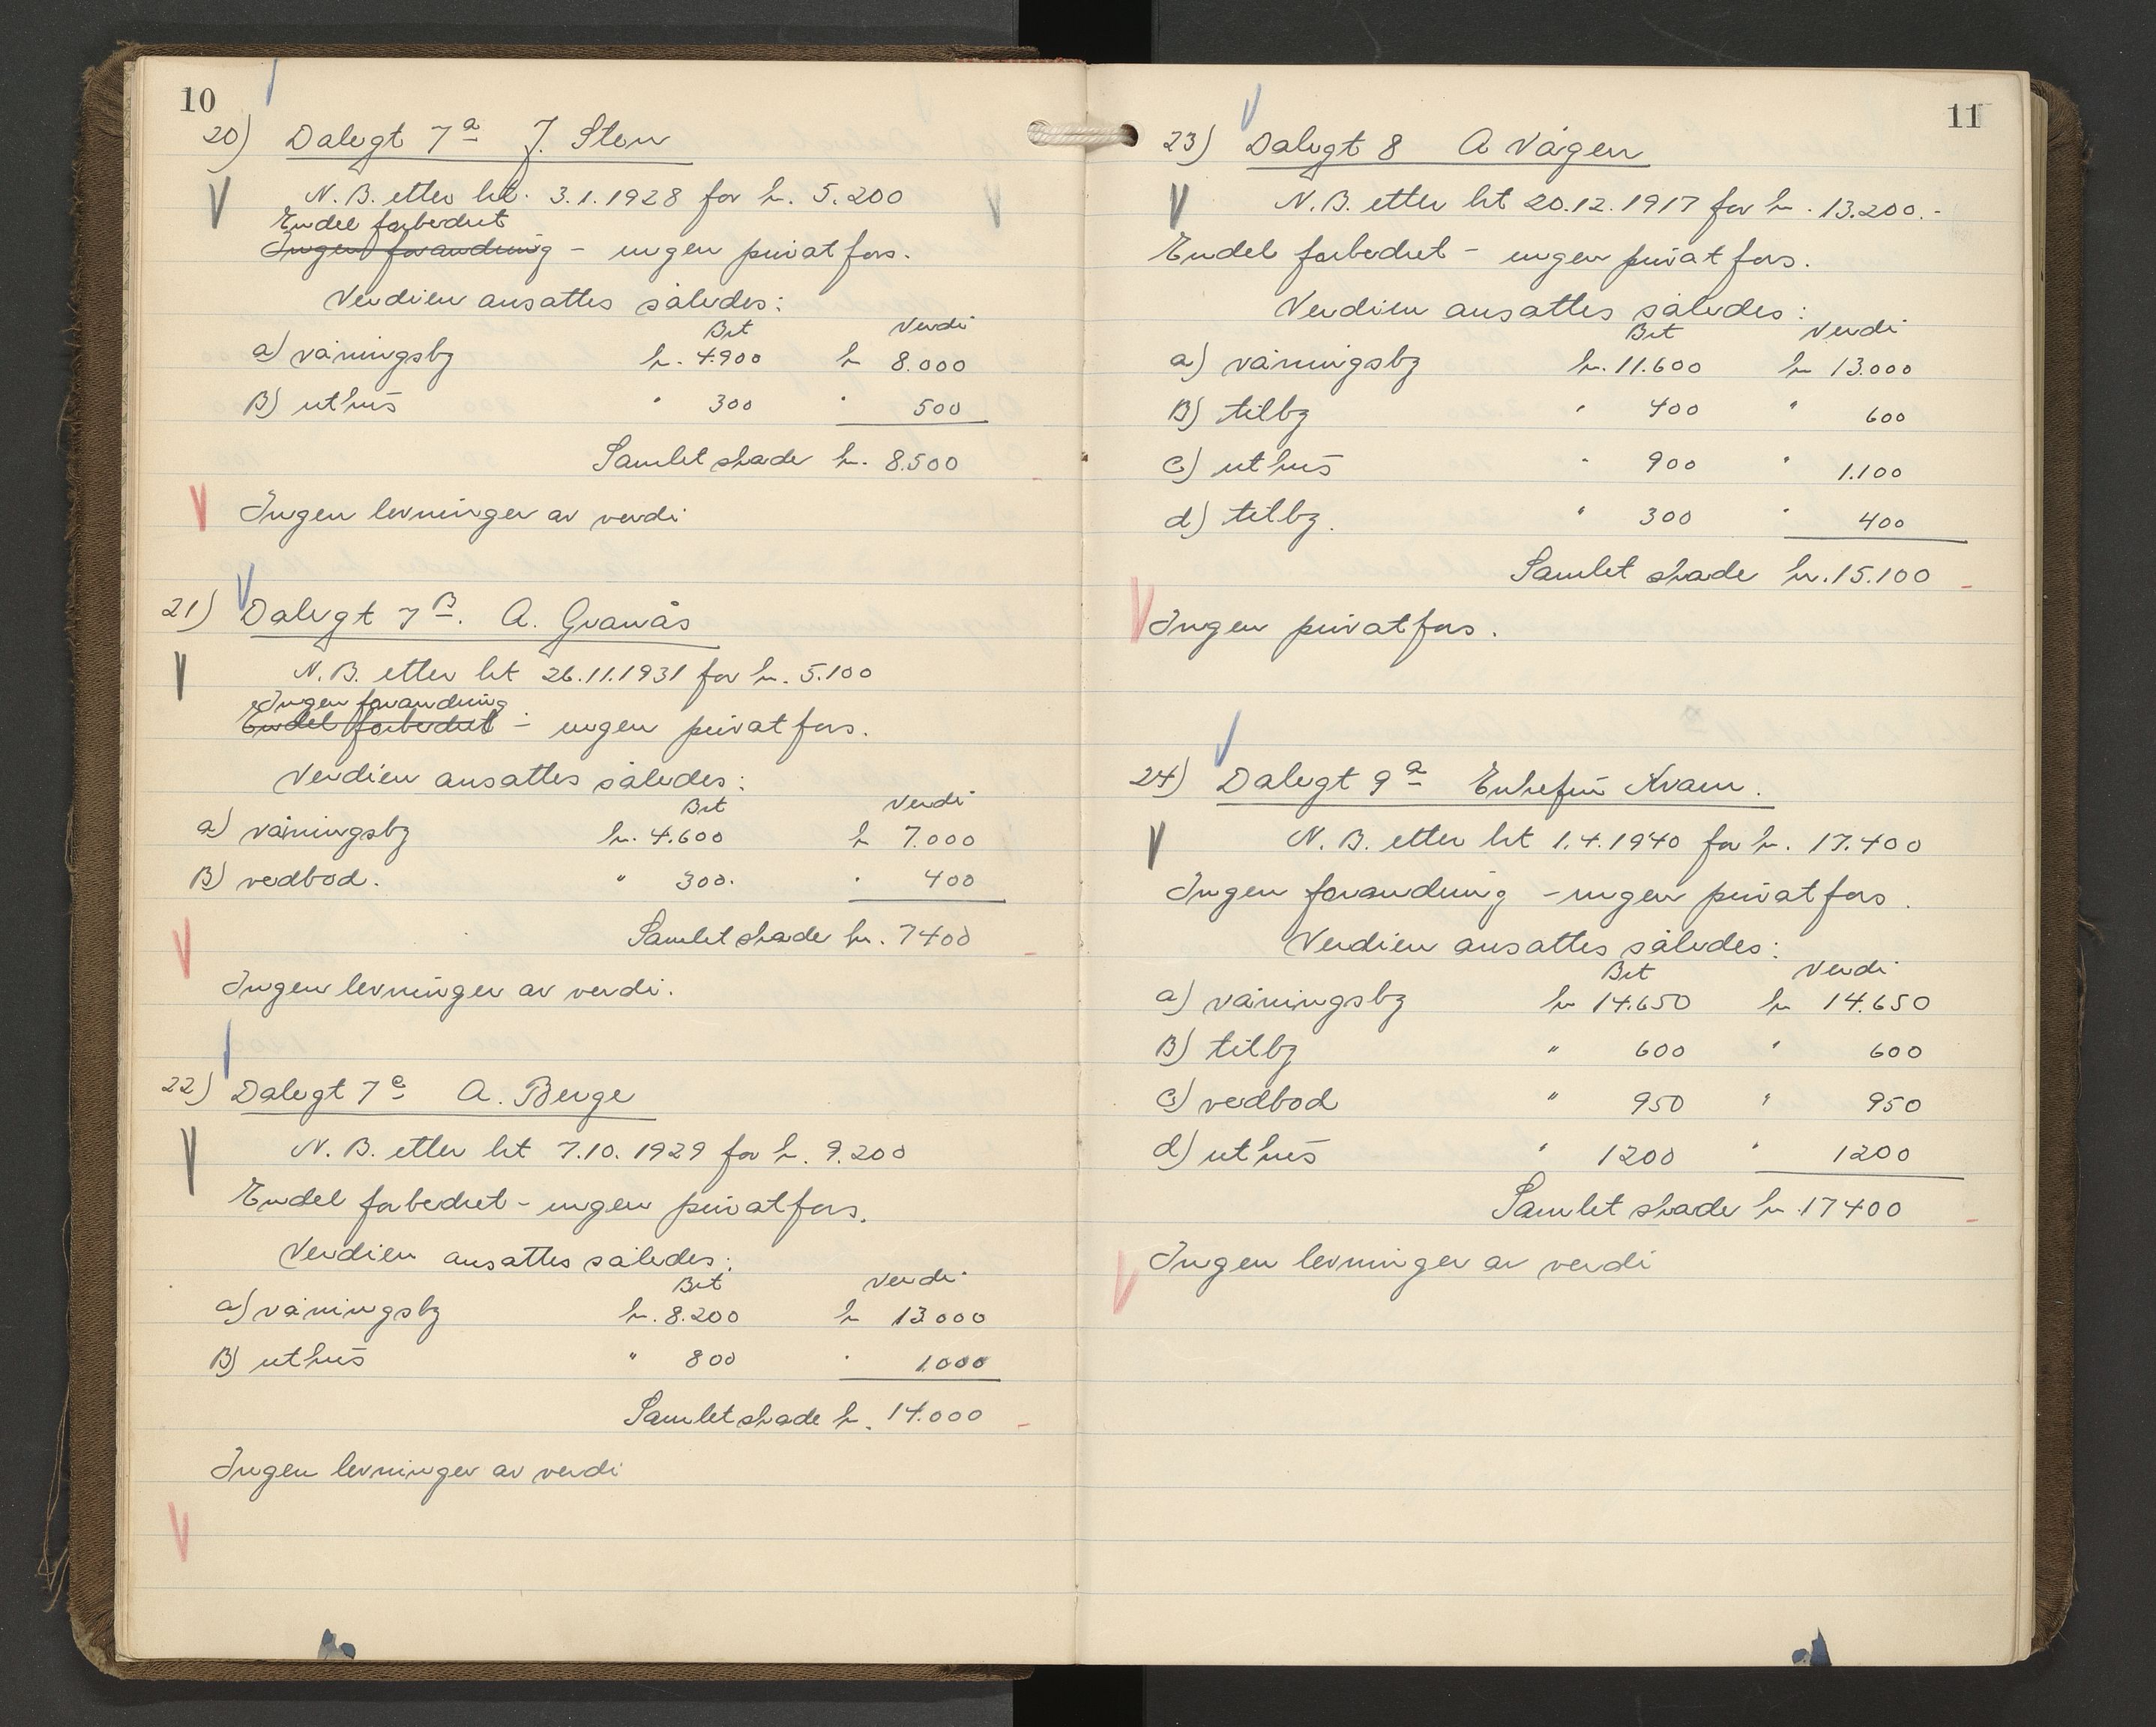 10
20) Dalegt 7a J. Sten
N.B. etter bt. 3.1.1928 for kr. 5.200
Endel forbedret
Ingen forandring - ingen privat fors.
Verdien ansattes således:
Bet Verdi
a) våningsby kr. 4.900 kr 8.000
B) uthus " 300 " 500
Samlet skade kr. 8.500
Ingen levninger av verdi
21) Dalegt 7B. A. Granås
N.B. etter bt 26.11.1931 for kr. 5.100
Ingen forandring
Endel forbedret - ingen privat fors.
Verdien ansattes således:
Bet Verdi
a) våningsby kr. 4.600 kr 7.000
B) vedbod. " 300. " 400
Samlet skade kr. 7400
Ingen levninger av verdi.
22) Dalegt 7c A. Berge
N.B. etter bt 7.10.1929 for kr. 9.200
Endel forbedret - ingen privat fors.
Verdien ansattes således:
Bet Verdi
a) våningsby kr. 8.200 kr 13000
B) uthus " 800 " 1.000
Samlet skade kr. 14.000
Ingen levninger av verdi
11
23) Dalegt 8 A Vågen
N.B. etter bt 20.12.1917 for kr. 13.200.-
Endel forbedret - ingen privat fors.
Verdien ansattes således:
Bet Verdi
a) våningsby kr. 11.600 kr 13.000
B) tilby " 400 " 600
c) uthus " 900 " 1.100
d) tilby. " 300 " 400
Samlet skade kr. 15.100
Ingen privat fors.
24) Dalegt 9a Enkefru Kvam.
N.B. etter bt 1.4.1940 for kr. 17.400
Ingen forandring - ingen privat fors.
Verdien ansattes således:
Bet Verdi
a) våningsby kr 14.650 kr 14.650
B) tilby " 600 " 600
c) vedbod " 950 " 950
d) uthus " 1200 " 1200
Samlet skade kr. 17400
Ingen levninger av verdi